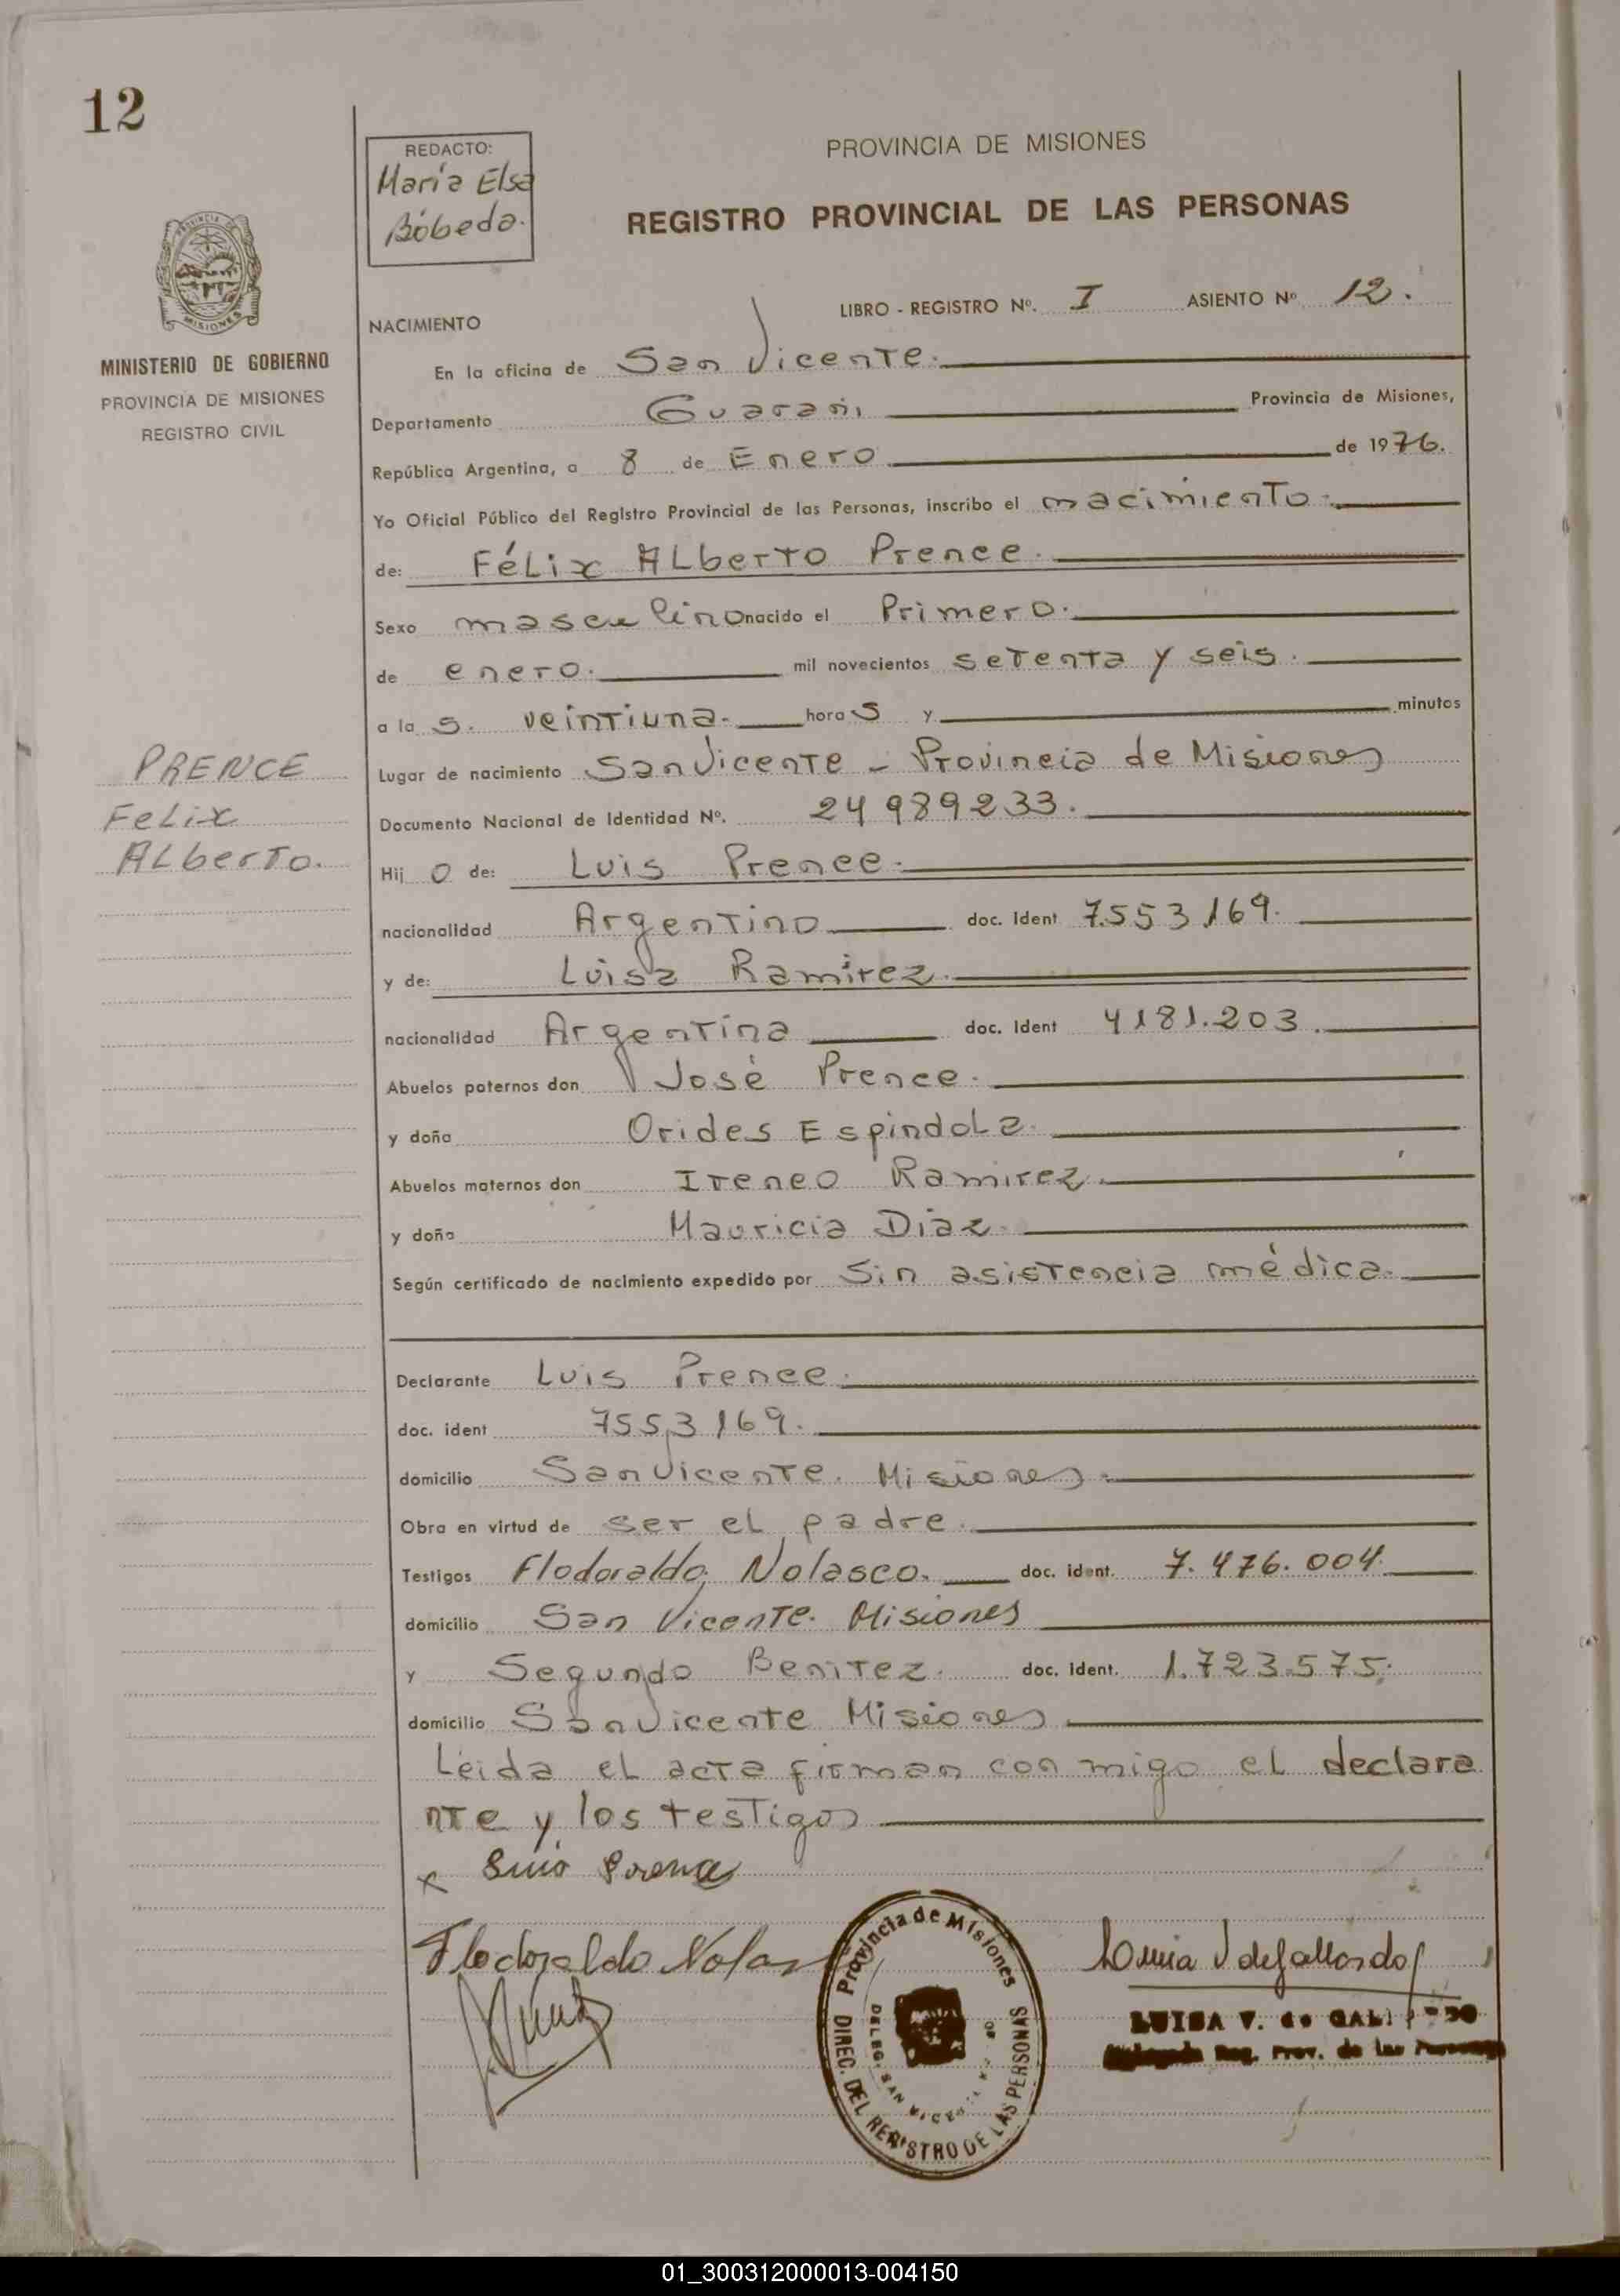 12
REDACTO:
María Elsa
Bóbeda.
PROVINCIA DE MISIONES
REGISTRO PROVINCIAL DE LAS PERSONAS
PROVINCIA DE
MISIONES
MINISTERIO DE GOBIERNO
PROVINCIA DE MISIONES
REGISTRO CIVIL
LIBRO - REGISTRO Nº. I ASIENTO Nº 12.
NACIMIENTO
En la oficina de San Vicente.
Departamento Guarani Provincia de Misiones,
República Argentina, a 8 de Enero de 1976.
Yo Oficial Público del Registro Provincial de las Personas, inscribo el nacimiento.
de: Félix Alberto Prence.
Sexo masculino nacido el Primero.
de enero. mil novecientos setenta y seis.
a la s. veintiuna. hora s y minutos
Lugar de nacimiento San Vicente - Provincia de Misiones
Documento Nacional de Identidad Nº. 24989233.
Hij o de: Luis Prence.
nacionalidad Argentino doc. ident 7.553.169.
y de: Luisa Ramirez.
nacionalidad Argentina doc. ident 4181.203.
Abuelos paternos don José Prence.
y doña Orides Espindola.
Abuelos maternos don Ireneo Ramirez.
y doña Mauricia Diaz.
Según certificado de nacimiento expedido por Sin asistencia médica.
PRENCE
Felix
Alberto.
Declarante Luis Prence.
doc. ident 7553169.
domicilio San Vicente. Misiones.
Obra en virtud de ser el padre.
Testigos Flodoraldo Nolasco. doc. ident. 7.476.004.
domicilio San Vicente. Misiones
y Segundo Benitez. doc. ident. 1.723.575.
domicilio San Vicente Misiones
Leida el acta firman con migo el declara
nte y los testigos
x Luis Prence
Flodoraldo Nolas
Provincia de Misiones
DIREC. DEL REGISTRO DE LAS PERSONAS
DELEG. SAN VICENTE
Luisa V de Gallardo
LUISA V. de GALLARDO
Reg. Prov. de las Personas
01_300312000013-004150